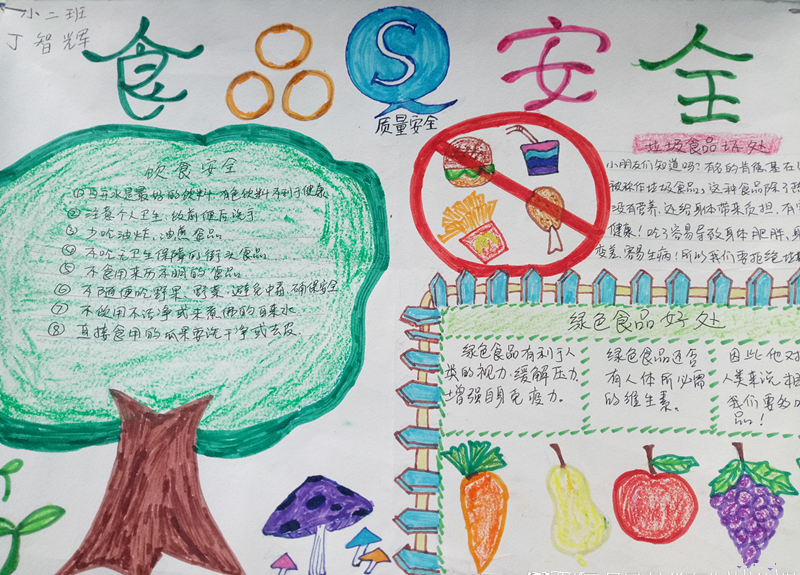 小二班
丁智辉
食品安全
S
质量安全
饮食安全
①白开水是最好的饮料,有色饮料不利于健康
②注意个人卫生,饭前便后洗手
③少吃油炸、油煎食品
④不吃无卫生保障的街头食品
⑤不食用来历不明的食品
⑥不随便吃野果、野菜,避免中毒,确保安全
⑦不饮用不洁净或未煮沸的自来水
⑧直接食用的瓜果要洗干净或去皮
垃圾食品坏处
小朋友们知道吗?有名的肯德基在
被称作垃圾食品,这种食品除了
没有营养,还给身体带来负担,
健康!吃了容易导致身体肥胖,
变差,容易生病!所以我们要拒绝垃
绿色食品好处
绿色食品有利于人
类的视力,缓解压力,
增强自身免疫力。
绿色食品还含
有人体所必需
的维生素。
因此他对
人类来说
我们要多
品!